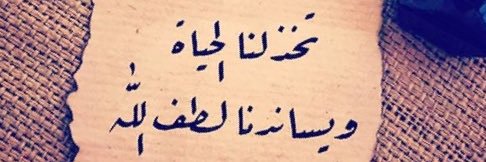 تخذلنا الحياة
ويساندنا لطف الله